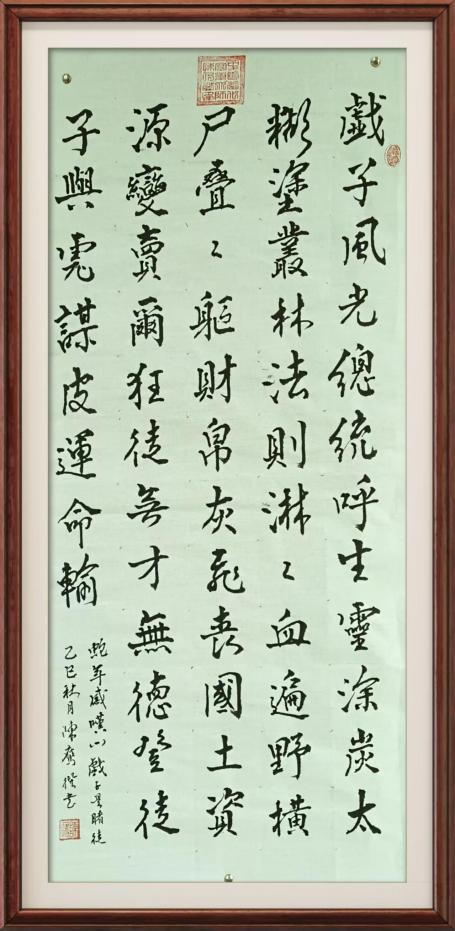 戲子風光總統呼生靈涂炭太
糊塗叢林法則淋〻血遍野橫
尸疊〻軀財帛灰飛喪國土資
源變賣爾狂徒无才無德登徒
子與虎謀皮運命輸
蛇年感嘆小戲子是賭徒
乙巳秋月陳